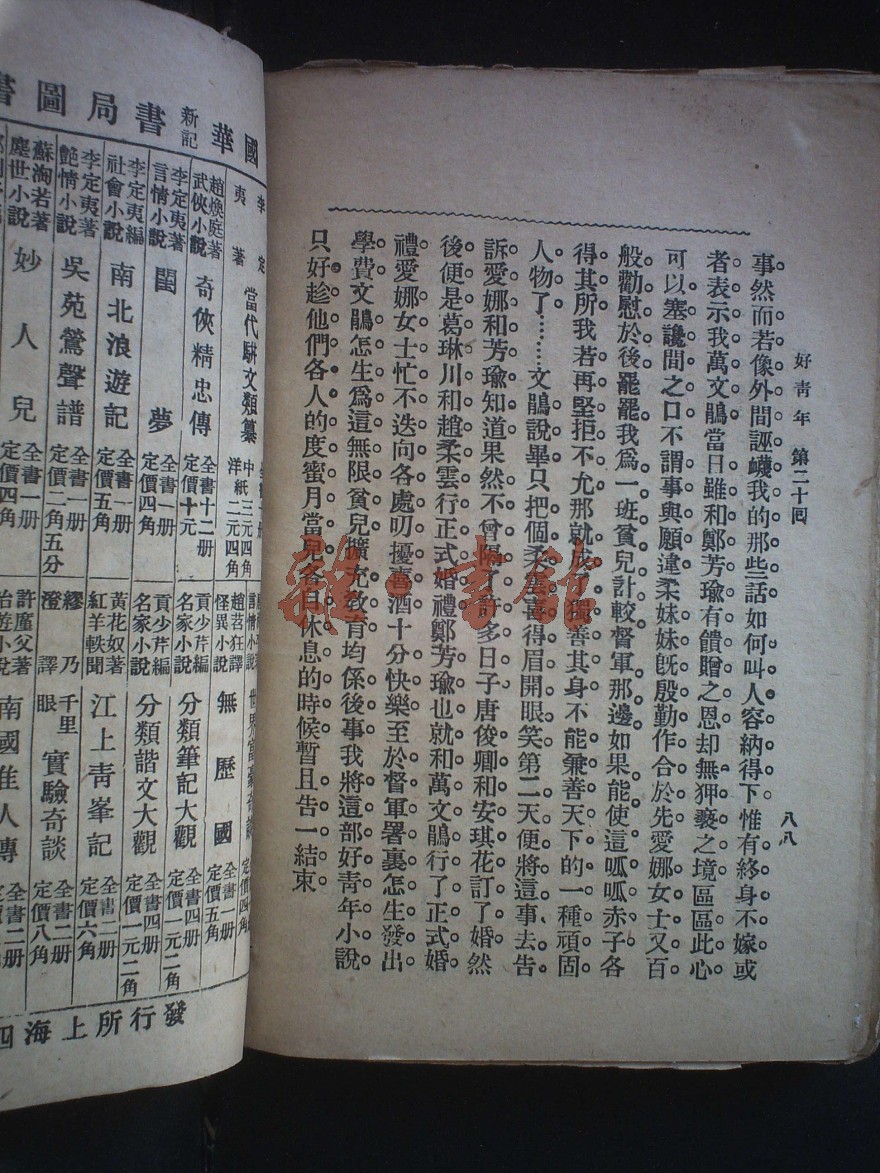 好青年 第二十回 八八
事然而若像外間誣衊我的那些話如何叫人容納得下惟有終身不嫁或
者表示我萬文鵑當日雖和鄭芳瑜有饋贈之恩却無狎褻之境區區此心
可以塞讒間之口不謂事與願違柔妹妹旣殷勤作合於先愛娜女士又百
般勸慰於後罷罷我爲一班貧兒計較督軍那邊如果能使這呱呱赤子各
得其所我若再堅拒不允那就成了獨善其身不能兼善天下的一種頑固
人物了………文鵑說畢只把個柔雲喜得眉開眼笑第二天便將這事去告
訴愛娜和芳瑜知道果然不曾隔了許多日子唐俊卿和安琪花訂了婚然
後便是葛琳川和趙柔雲行正式婚禮鄭芳瑜也就和萬文鵑行了正式婚
禮愛娜女士忙不迭向各處叨擾喜酒十分快樂至於督軍署裏怎生發出
學費文鵑怎生爲這無限貧兒擴充敎育均係後事我將這部好靑年小說
只好趁他們各人的度蜜月當兒各自休息的時候暫且告一結束
國華新記書局圖書
李定夷著 當代駢文類纂 中紙三元四角 洋紙二元四角
趙煥庭著 武俠小說 奇俠精忠傳 全書十二册 定價十元
李定夷著 言情小說 閨夢 全書一册 定價四角
李定夷編 社會小說 南北浪遊記 全書一册 定價五角
李定夷著 艷情小說 吳苑鶯聲譜 全書一册 定價二角五分
蘇海若著 塵世小說 妙人兒 全書一册 定價四角
趙苕狂譯 怪異小說 無歷國 全書一册 定價五角
貢少芹編 名家小說 分類筆記大觀 全書四册 定價一元二角
貢少芹編 名家小說 分類諧文大觀 全書四册 定價一元二角
黃花奴著 紅羊軼聞 江上靑峯記 全書二册 定價六角
繆乃澄譯 千里眼 實驗奇談 全書二册 定價八角
許廑父著 冶遊小說 南國佳人傳 全書二册
發行所上海四
雜·書館